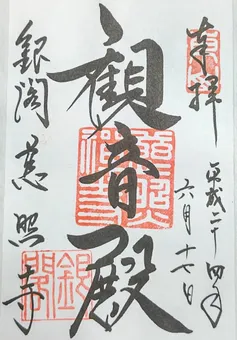 奉拝
平成二十四年
六月十七日
観音殿
銀閣慈照寺